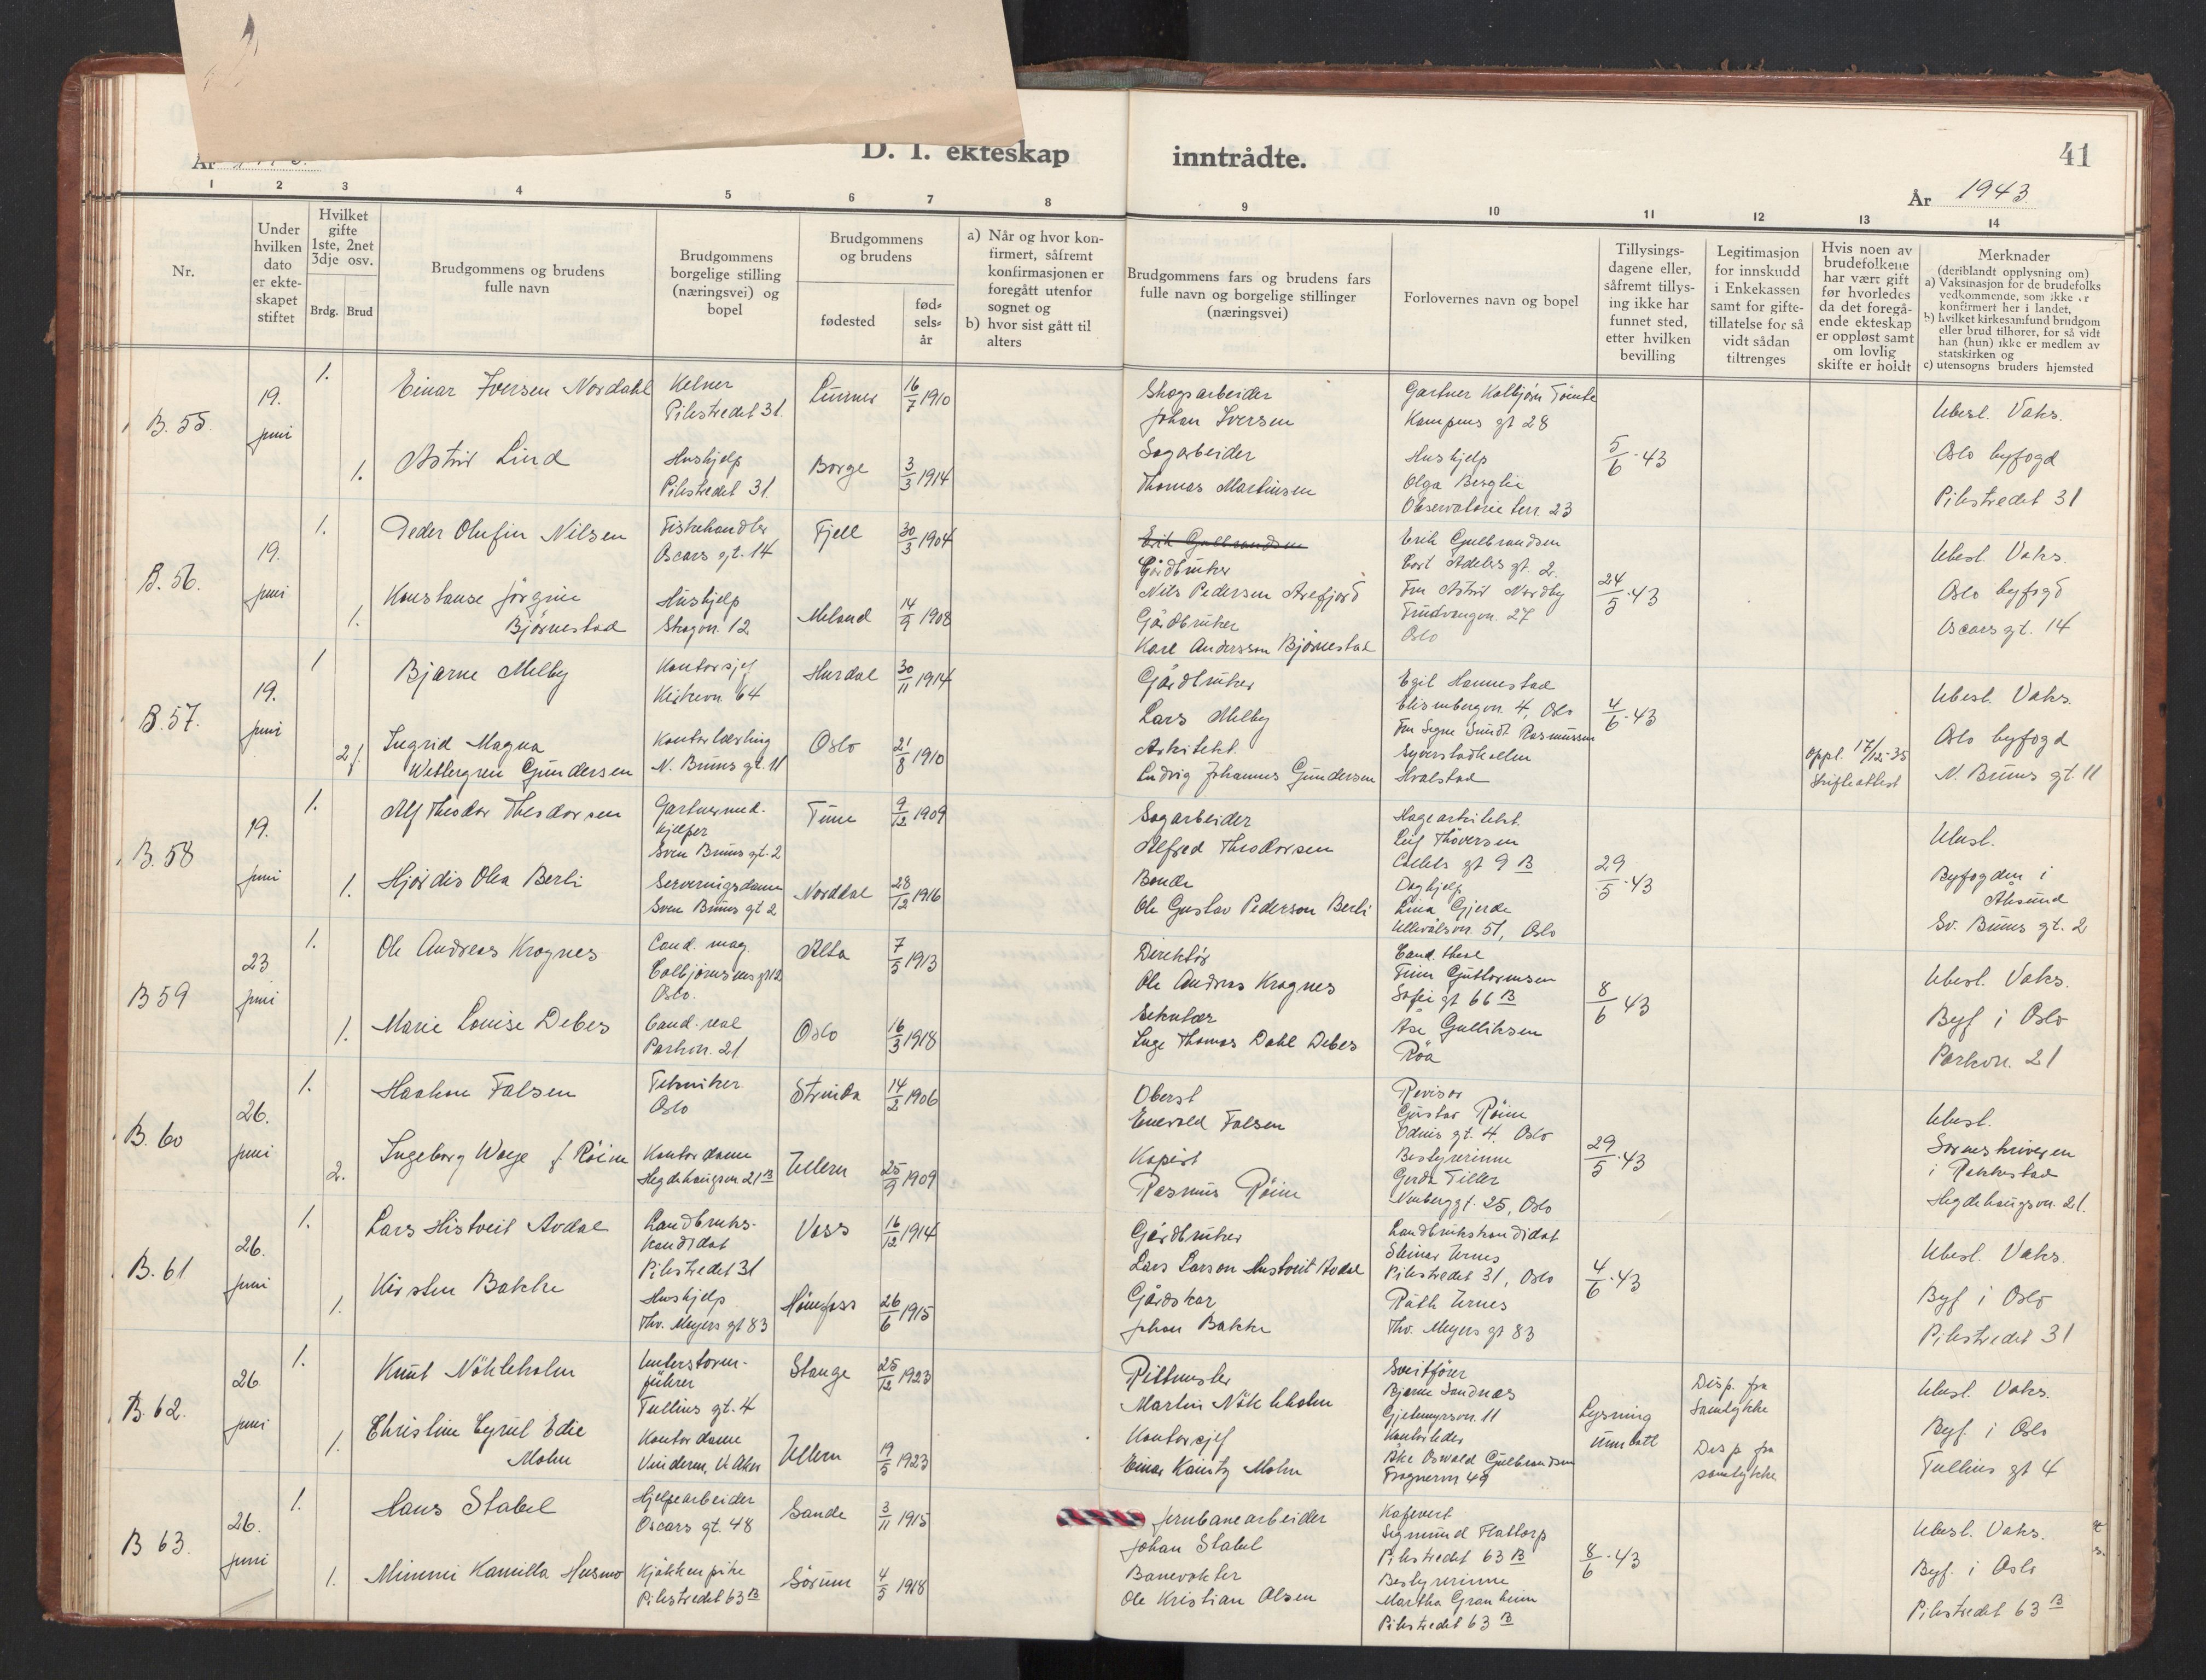 D. I. ekteskap
inntrådte.
41
År
År 1943.
1
2
3
4
5
6
7
8
9
10
11
12
13
14
Nr.
Under
hvilken
dato
er ekte-
skapet
stiftet
Hvilket
gifte
1ste, 2net
3dje osv.
Brdg.
Brud
Brudgommens og brudens
fulle navn
Brudgommens
borgelige stilling
(næringsvei) og
bopel
Brudgommens
og brudens
fødested
fød-
sels-
år
a) Når og hvor kon-
firmert, såfremt
konfirmasjonen er
foregått utenfor
sognet og
b) hvor sist gått til
alters
Brudgommens fars og brudens fars
fulle navn og borgelige stillinger
(næringsvei)
Forlovernes navn og bopel
Tillysings-
dagene eller,
såfremt tillys-
ing ikke har
funnet sted,
etter hvilken
bevilling
Legitimasjon
for innskudd
i Enkekassen
samt for gifte-
tillatelse for så
vidt sådan
tiltrenges
Hvis noen av
brudefolkene
har vært gift
før hvorledes
da det foregå-
ende ekteskap
er oppløst samt
om lovlig
skifte er holdt
Merknader
(deriblandt opplysning om)
a) Vaksinasjon for de brudefolks
vedkommende, som ikke er
konfirmert her i landet,
b) hvilket kirkesamfund brudgom
eller brud tilhører, for så vidt
han (hun) ikke er medlem av
statskirken og
c) utensogns bruders hjemsted
B. 55.
19.
juni
1.
Einar Iversen Nordahl
Kelner
Pilestredet 31.
Lunner
16/7 1910
Skogsarbeider
Johan Iversen
Gartner Kolbjørn Tömte
Kampens gt 28
1.
Astrid Lind
Hushjelp
Pilestredet 31.
Borge
3/3 1914
Sagarbeider
Thomas Martinsen
Hushjelp
Olga Berglie
Observatorie terr 23
5/6.43
Ubesl. Vaks.
Oslo byfogd
Pilestredet 31
B. 56.
19.
juni
1.
Peder Olufin Nilsen
Fiskehandler
Oscars gt. 14
Fjell
30/3 1904
Erik Gulbrandsen
Gårdbruker
Nils Pedersen Arefjord
Erik Gulbrandsen
Cort Adelers gt. 2.
1.
Konstanse Jörgine
Björnestad
Hushjelp
Skogvn. 12
Meland
14/9 1908
Gårdbruker
Karl Andersson Björnestad
Fru Astrid Nordby
Trudvangvn. 27
Oslo
24/5.43
Ubesl. Vaks.
Oslo byfogd
Oscars gt. 14
B. 57.
19.
juni
1
Bjarne Melby
Kontorsjef
Kirkevn. 64
Hurdal
30/11 1914
Gårdbruker
Lars Melby
Egil Hannestad
4, Oslo
2 f.
Ingrid Magna
Wettergren Gundersen
Kontorlærling
N. Bruns gt. 11
Oslo
21/8 1910
Arkitekt.
Ludvig Johannes Gundersen
Fru Signe Sundt Rasmussen
Syverstadkollen
Hvalstad
4/6.43
oppl. 17/12-35
Skifteattest
Ubesl. Vaks.
Oslo byfogd
N. Bruns gt. 11
B. 58
19.
juni
1.
Alf Theodor Theodorsen
Gartnermed-
hjelper
Sven Bruns gt. 2
Tune
9/12 1909
Sagarbeider
Alfred Theodorsen
Hagearkitekt.
Leif Thöversen
Colletts gt 9 B
1.
Hjördis Olea Berli
Serveringsdame
Sven Bruns gt 2
Norddal
28/12 1916
Bonde
Ole Gustav Pederson Berli
Daghjelp
Lina Gjerde
Ullevålsvn. 51, Oslo
29/5.43
Ubesl.
Byfogden i
Ålesund
Sv. Bruns gt. 2
B 59
23
juni
1.
Ole Andreas Krognes
Cand. mag.
Colbjörnsens gt 12
Oslo.
Alta
7/5 1913
Direktör
Ole Andreas Krognes
Cand. theol
Finn Guttormsen
Sofies gt 66 B
1.
Marie Louise Debes
Cand. real
Parkvn. 21
Oslo
16/3 1918
Sekretær
Inge Thomas Dahl Debes
Åse Gulliksen
Röa
8/6 43
Ubesl. Vaks.
Byf i Oslo
Parkvn. 21
B. 60
26.
juni
1.
Haakon Falsen
Tekniker
Oslo
Strinda
14/2 1906
Oberst
Enevold Falsen
Revisor
Gustav Röine
Odins gt. 4. Oslo
2.
Ingeborg Woye f. Röine
Kontordame
Hegdehaugsvn. 21 B
Ullern
25/9 1909
Kopist
Rasmus Röine
Bestyrerinne
Gerda Tiller
25, Oslo
29/5.43
Ubesl.
Sorenskriveren
i Rakkestad
Hegdehaugsvn. 21.
B. 61
26.
juni
1.
Lars Histveit Avdal
Landbruks-
kandidat
Pilestredet 31
Voss
16/12 1914
Gårdbruker
Lars Larson Hustveit Avdal
Landbrukskandidat
Steinar Urnes
Pilestredet 31, Oslo
1.
Kirsten Bakke
Hushjelp
Thv. Meyers gt 83
Hönefoss
26/6 1915
Gårdskar
Johan Bakke
Ruth Urnes
Thv. Meyers gt 83
4/6.43
Ubesl. Vaks.
Byf i Oslo
Pilestredet 31
B. 62.
26
juni
1.
Knut Nökleholm
Unterstorm-
führer
Tullins gt. 4
Stange
25/12 1923
Rittmester
Martin Nökleholm
Sveitförer
Bjarne Sandnæs
Gjetemyrsvn. 11
1.
Christine Cyril Edie
Mohn
Kontordame
Vinderen, V. Aker
Ullern
19/5 1923
Kontorsjef
Einar Kauntz Mohn
Kontorleder
Åke Osvald Gulbrandsen
Frognervn 49
Lysning
unnlatt
Disp. fra
Samtykke
Disp fra
samtykke
Ubesl. Vaks.
Byf. i Oslo
Tullins gt 4
B 63.
26.
juni
1.
Hans Stabel
Hjelpearbeider
Oscars gt. 48
Sande
3/11 1915
Jernbanearbeider
Johan Stabel
Kafevert
Sigmund Flattorp
Pilestredet 63 B
1.
Mimmi Kamilla Husmo
Kjökkenpike
Pilestredet 63 B
Sörum
4/5 1918
Banevokter
Ole Kristian Olsen
Bestyrerinne
Martha Granheim
Pilestredet 63 B
8/6.43
Ubesl. Vaks.
Byf. i Oslo
Pilestredet 63 B